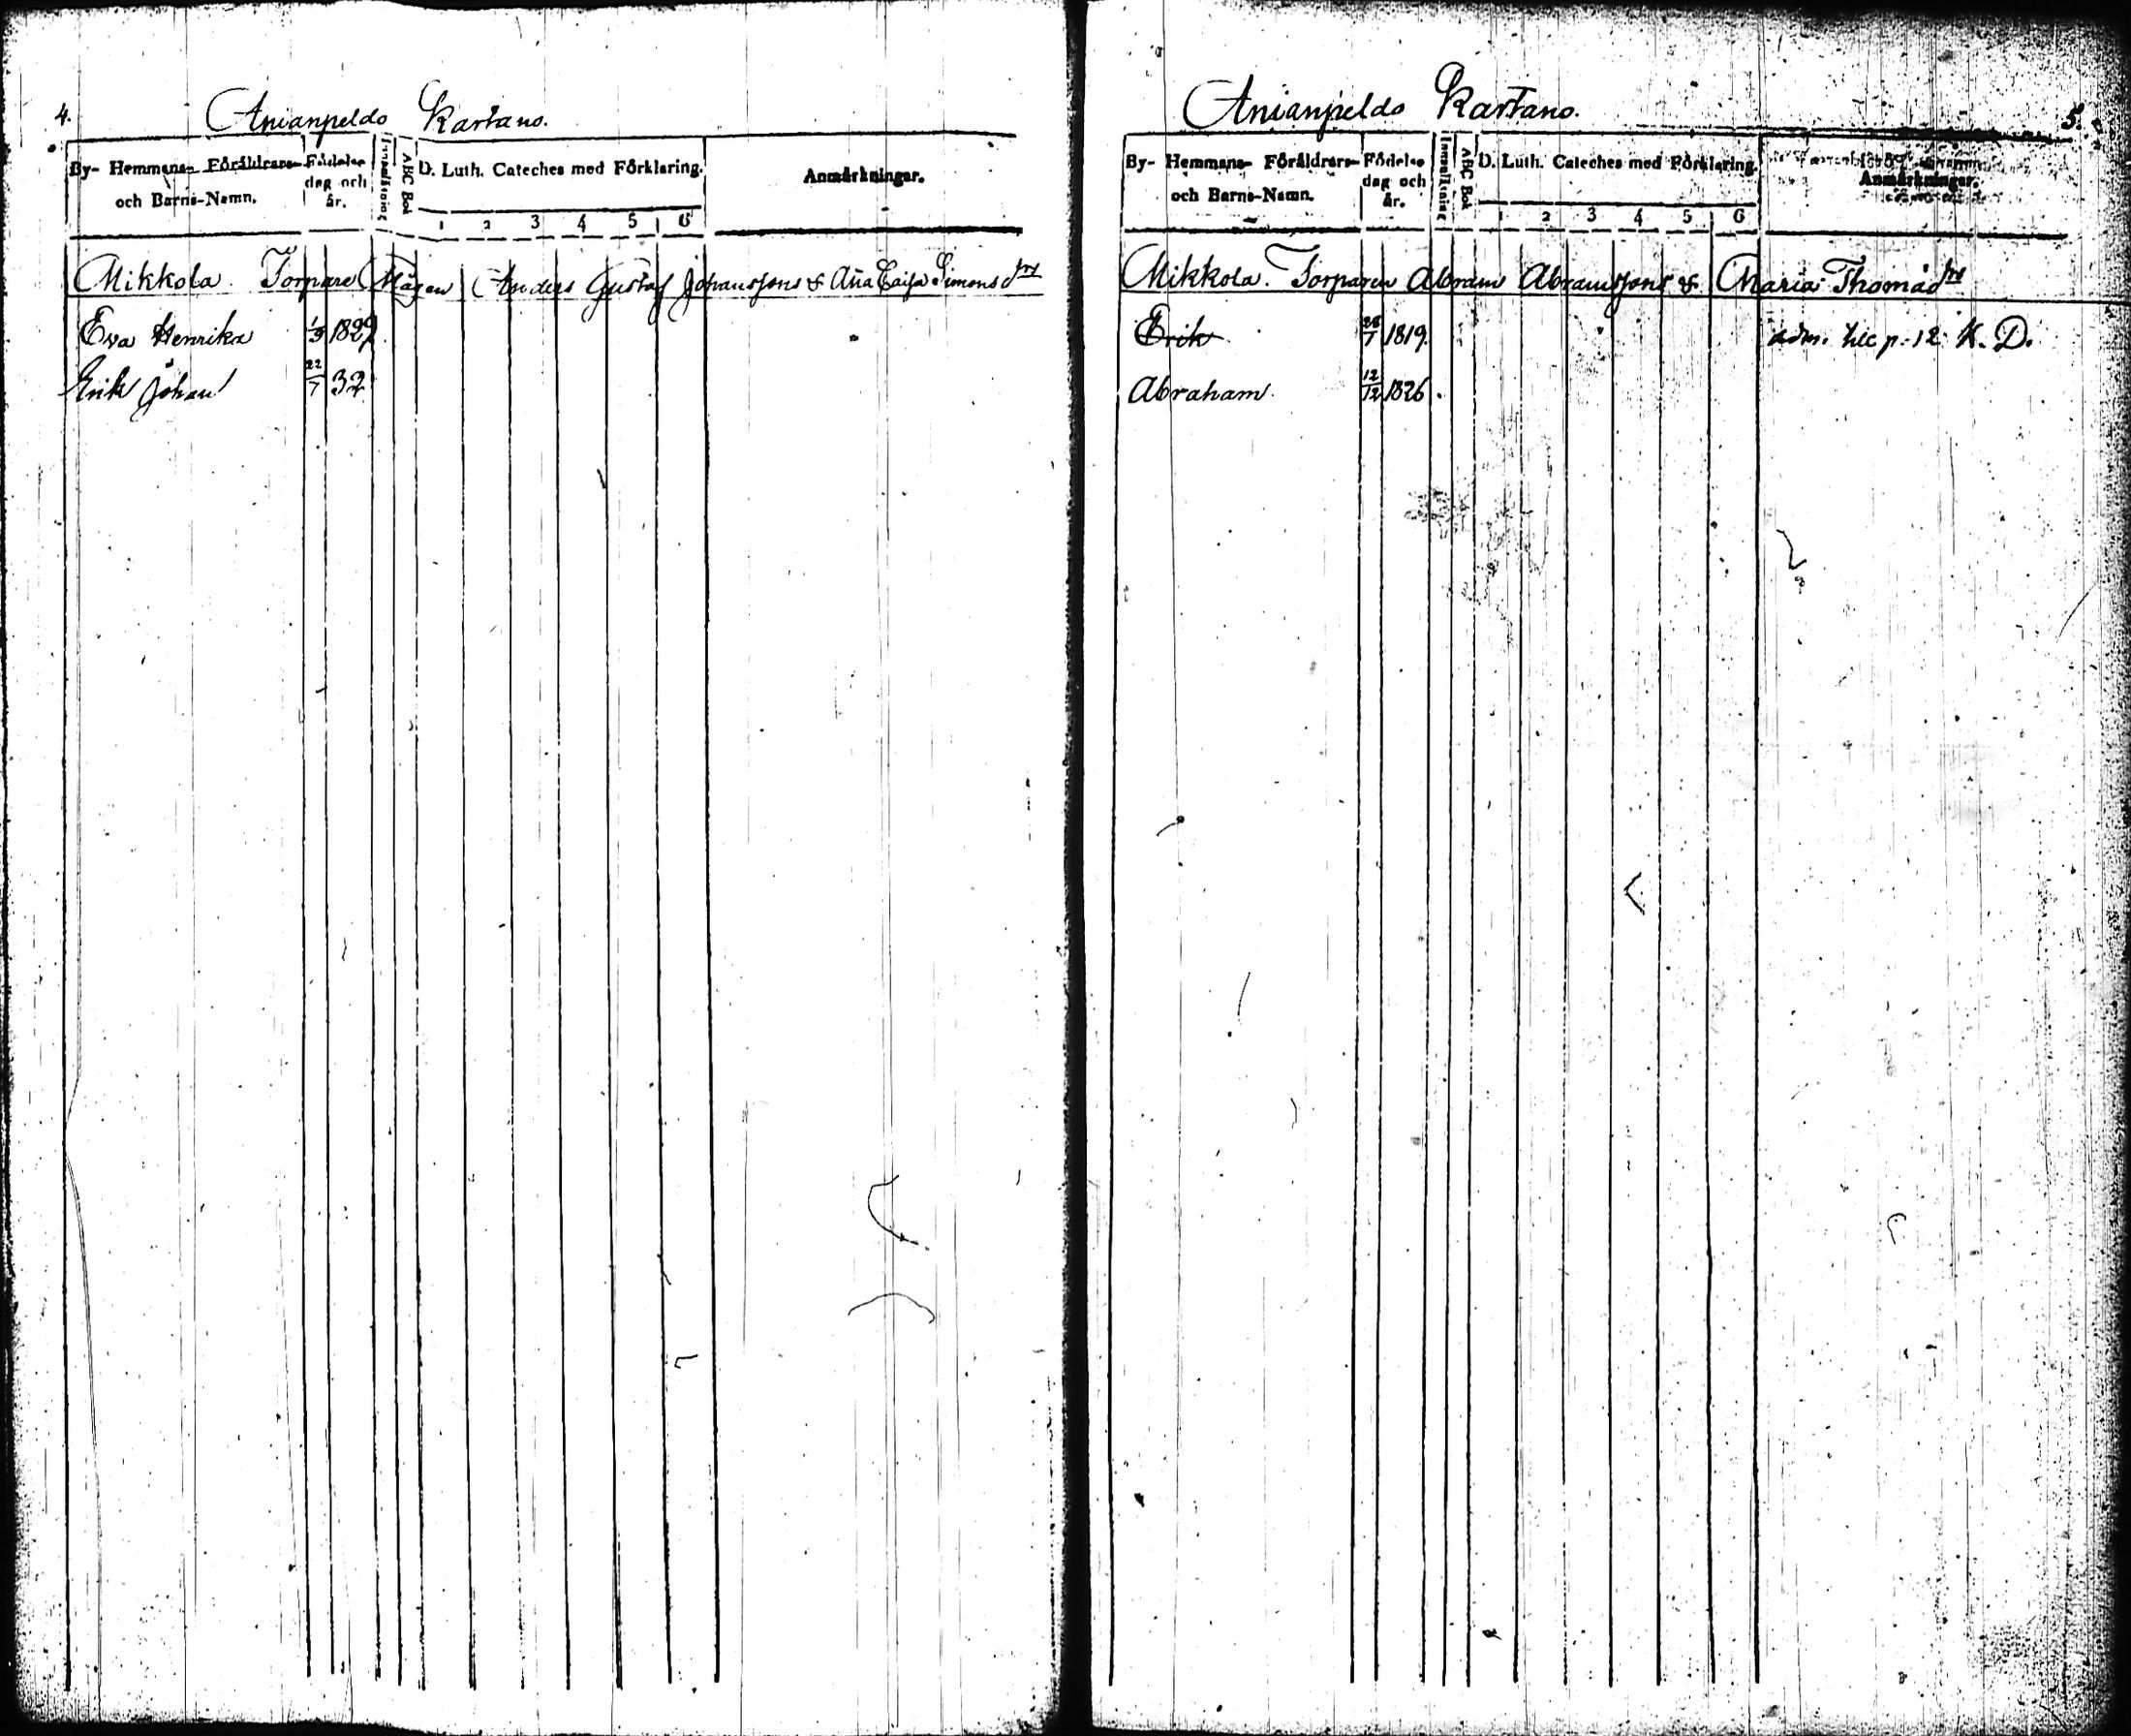 4.
Anianpeldo Kartano.
By- Hemmans- Föräldrars- och Barns-Namn.
Födelse dag och år.
Innanläsning
ABC Bok
D. Luth. Cateches med Förklaring.
1 2 3 4 5 6
Anmärkningar.
Mikkola. Torpare Mågen Anders Gustaf Johanssons & Aña Caisa Simonsdrs
Eva Henrika 1/9 1829
Erik Johan 22/7 32
5.
Anianpeldo Kartano.
By- Hemmans- Föräldrars- och Barns-Namn.
Födelse dag och år.
Innanläsning
ABC Bok
D. Luth. Cateches med Förklaring.
1 2 3 4 5 6
Anmärkningar.
Mikkola. Torparen Abram Abramssons & Maria Thomädrs
Erik 1819. adm. p. 12 K. D.
Abraham. 12/12 1826